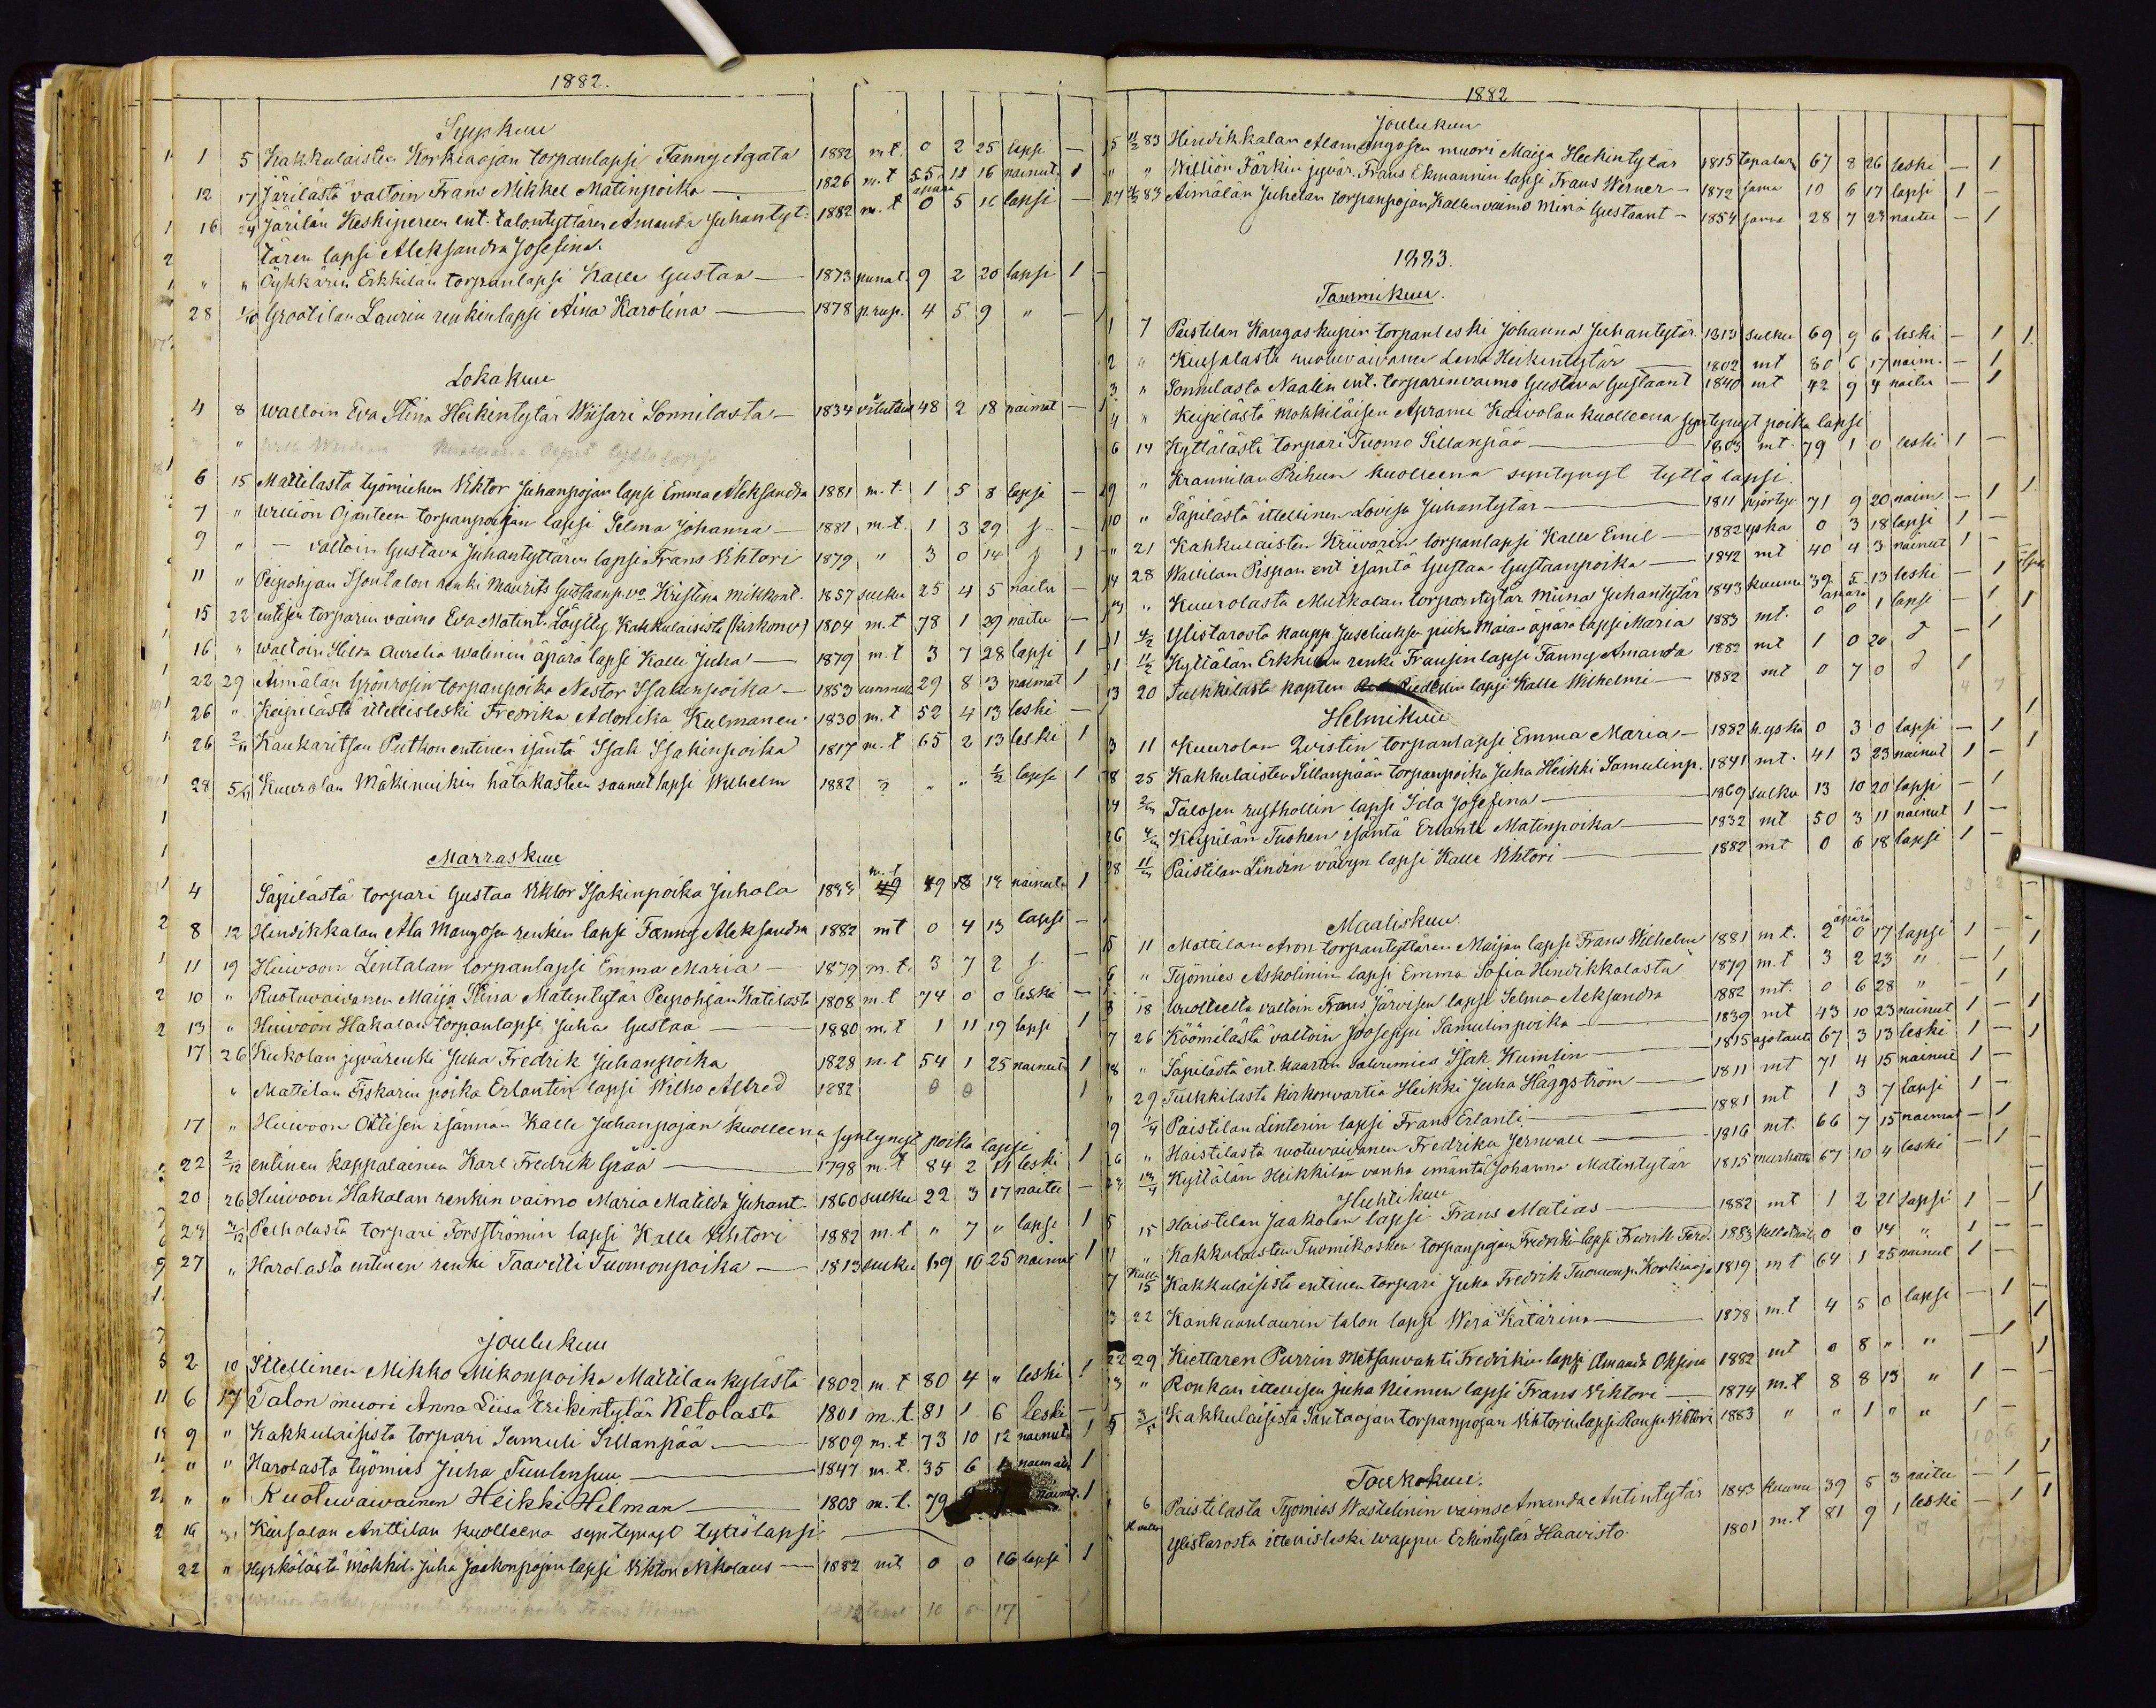 1882.
Syyskuu
1 5 Kakkulaisten Korkiaojan torpanlapsi Fanny Agata 1882 m.t. 0 2 25 lapsi —
12 17 Järilästä valtoin Frans Mikkel Matinpoika — 1826 m.t 55 11 16 nainut 1
16 24 Järilän Keskipereen ent. talontyttären Amanda Juhantyt- 1882 m.t äpärä 0 5 16 lapsi —
tären lapsi Aleksandra Josefina.
" " Öykkärin Erkkilän torpanlapsi Kalle Gustaa — 1873 punat. 9 2 20 lapsi 1 —
28 1/10 Grootilan Laurin renkinlapsi Aina Karolina — 1878 prup. 4 5 9 " —
Lokakuu
4 8 walloin Eva Stina Heikintytär Wiisari Sonnilasta — 1834 48 2 18 naimat —
6 15 Mattilasta työmiehen Viktor Juhanpojan lapsi Emma Aleksandra 1881 m.t. 1 5 8 lapsi —
7 " Willion Ojanteen torpanpoijan lapsi Selma Johanna — 1881 m.t. 1 3 29 —
9 " — valtoin Gustava Juhantyttären lapsi Frans Vihtori 1879 " 3 0 14 1
11 " Peipohjan Isontalon renki Maurits Gustaanp. vo Kristina Mikkont. 1857 sulku 25 4 5 naitu —
15 22 entisen torparin vaimo Eva Matint. Löylly Kakkulaisista (kirkonv) 1804 m.t 78 1 29 naitu —
16 " waltoin Hilda Aurelia Walenin äpärä lapsi Kalle Juha — 1879 m.t 3 7 28 lapsi 1
22 29 Äimälän Grönrosin torpanpoika Nestor Isakinpoika — 1853 29 8 13 naimat 1
26 " Keipilästä itellisleski Fredrika Adonika Kulmanen 1830 m.t 52 4 13 leski —
26 2/11 Kaukaritsan Puthon entinen isäntä Isak Isakinpoika 1817 m.t 65 2 13 leski 1
28 5/11 Kuurolan Mäkimuikin hätäkasteen saanut lapsi Wilhelm 1882 ? " " 1/2 lapsi 1
Marraskuu
4 Säpilästä torpari Gustaa Viktor Isakinpoika Juhola m.t 49 nainut 1
8 12 Hindikkalan Ala Mangosen renkin lapsi Fanny Aleksandra 1882 mt 0 4 13 lapsi —
11 19 Huivoon Lentalan torpanlapsi Emma Maria — 1879 m.t. 3 7 2 —
10 " Ruotuvaivanen Maija Stina Matintytär Peipohjan Katilasta 1808 m.t 74 0 0 leski —
13 " Huivoon Hakalan torpanlapsi Juha Gustaa — 1880 m.t 1 11 19 lapsi 1
17 26 Kukolan jyvärenki Juha Fredrik Juhanpoika 1828 m.t 54 1 25 nainut 1
" Mattilan Fiskarin poika Erlantin lapsi Wilho Alfred 1882 0 0 1
17 " Huivoon Ottilsen isännän Kalle Juhanpojan kuolleena syntynyt poika lapsi
22 2/12 entinen kappalainen Karl Fredrik Grää — 1798 m.t 84 2 11 leski 1
20 26 Huivoon Hakalan renkin vaimo Maria Matilda Juhant. 1860 sulku 22 3 17 naitu —
/12 Peiholasta torpari Forsströmin lapsi Kalle Vihtori 1882 m.t " 7 " lapsi 1
27 " Harolasta entinen renki Taavetti Tuomonpoika — 1813 sulku 69 10 25 nainut 1
Joulukuu
2 10 Itellinen Mikko Mikonpoika Mattilan kylästä 1802 m.t 80 4 " leski 1
6 17 Talon muori Anna Liisa Erikintytär Ketolasta 1801 m.t. 81 1 6 leski —
9 " Kakkulaisista torpari Samuli Sillanpää — 1809 m.t. 73 10 12 nainut 1
" " Harolasta työmies Juha Tuulensuu — 1847 m.t. 35 6 1 naimat 1
" " Ruotuvaivainen Heikki Helman — 1803 m.t. 79 1
16 Kiusalan Anttilan kuolleena syntynyt tyttölapsi
22 " Hyrkölästä Mökkil. Juha Jaakonpojan lapsi Viktor Nikolaus — 1882 mt 0 0 16 lapsi 1
Frans Werner 1872 10 6 17
1882
Joulukuu
15 11/2 83 Hindikkalan Alamangosen muori Maija Heikintytär 1815 67 8 26 leski — 1
" " Willion Färkin jyvär. Frans Ekmannin lapsi Frans Werner — 1872 sama 10 6 17 lapsi 1 —
27 83 Äimälän Juhelan torpanpojan Kallen vaimo Mina Gustaant — 1854 sama 28 7 23 naitu — 1
1883.
Tammikuu.
1 7 Paistilan Kangaskupin torpanleski Johanna Juhantytär 1813 sulku 69 9 6 leski — 1
2 " Kiusalasta ruotuvaivanen Lena Heikintytär — 1802 mt 80 6 17 naim. — 1
3 " Sonnilasta Naalin ent. torparinvaimo Gustava Gustaant 1840 mt 42 9 4 naitu — 1
4 " Keipilästä Mökkiläisen Aprami Kaivolan kuolleena syntynyt poika lapsi
6 14 Kyttälästä torpari Tuomo Sillanpää — 1803 mt. 79 1 0 leski 1 —
9 " Krannilan Prihun kuolleena syntynyt tyttö lapsi.
10 " Säpilästä itellinen Lovisa Juhantytär — 1811 71 9 20 naim — 1
" 21 Kakkulaisten Kriivarin torpanlapsi Kalle Emil — 1882 yskä 0 3 18 lapsi 1 —
14 28 Wallilan Pispan ent isäntä Gustaa Gustaanpoika — 1842 mt 40 4 3 nainut 1 —
" Kuurolasta Mutkalan torpantytär Miina Juhantytär 1843 kuume 39 5 13 leski — 1
31 4/2 Ylistarosta kaupp. Juseliuksen piika Maian äpärä lapsi Maria 1883 mt. äpärä 0 0 1 lapsi — 1
31 11/2 Kyttälän Erkkilän renki Fransin lapsi Fanny Amanda 1882 mt 1 0 20 — 1
13 20 Tulkkilasta kapten lapsi Kalle Wilhelmi — 1882 mt 0 7 0 1
Helmikuu
3 11 Kuurolan Qvistin torpanlapsi Emma Maria — 1882 h.yskä 0 3 0 lapsi — 1
8 25 Kakkulaisten Sillanpään torpanpoika Juha Heikki Samulinp. 1841 mt. 41 3 23 nainut 1 —
14 Talosen rusthollin lapsi Ida Josefina — 1869 sulku 13 10 20 lapsi — 1
26 4/3 Keipilän Tuohen isäntä Erlanti Matinpoika — 1832 mt 50 3 11 nainut 1 —
28 11/3 Paistilan Lindin vävyn lapsi Kalle Vihtori — 1882 mt 0 6 18 lapsi 1 —
Maaliskuu.
11 Mattilan Aron torpantyttären Maijan lapsi Frans Wilhelm 1881 mt. äpärä 2 0 17 lapsi 1 —
" Työmies Askolinin lapsi Emma Sofia Hindikkalasta 1879 m.t 3 2 23 " — 1
18 Wuolteelta valtoin Frans Järvisen lapsi Selma Aleksandra 1882 mt. 0 6 28 " — 1
7 26 Köömilästä valtoin Jooseppi Samulinpoika — 1839 mt 43 10 23 nainut 1 —
18 " Säpilästä ent. kaartin sotamies Isak Kumlin — 1815 67 3 13 leski 1 —
" 29 Tulkkilasta kirkonvartia Heikki Juha Häggström — 1811 mt 71 4 15 nainut 1 —
9 1/4 Paistilan Linterin lapsi Frans Erlanti — 1881 mt 1 3 7 lapsi 1 —
26 " Haistilasta ruotuvaivanen Fredrika Jernvall — 1816 mt. 66 7 15 naimat — 1
/4 Kyttälän Heikkilän vanha emäntä Johanna Matintytär 1815 67 10 4 leski — 1
Huhtikuu
5 15 Haistilan Jaakolan lapsi Frans Matias — 1882 mt 1 2 21 lapsi 1 —
11 " Kakkulaisten Tuomikosken torpanpojan Fredrikin lapsi Fredrik Ferd. 1883 0 0 14 " 1 —
7 15 Kakkulaisista entinen torpari Juha Fredrik Tuomonp. Korkiaoja 1819 mt 64 1 25 nainut 1 —
3 22 Kankaanlaurin talon lapsi Wera Katarina — 1878 m.t 4 5 0 lapsi — 1
22 29 Kiettaren Purrin Metsanvahti Fredrikin lapsi Amanda Oksina 1882 mt 0 8 " " — 1
3 " Ronkan itellisen Juha Niemen lapsi Frans Vihtori — 1874 m.t 8 8 13 " 1 —
5 3/5 Kakkulaisista Santaojan torpanpojan Vihtorin lapsi Vihtori 1883 " " 1 " " 1 —
Toukokuu.
6 Paistilasta Työmies Wastelinin vaimo Amanda Antintytär 1843 kuume 39 5 3 naitu — 1
Ylistarosta itellisleski Wappu Erkintytär Haavisto. 1801 m.t 81 9 1 leski — 1